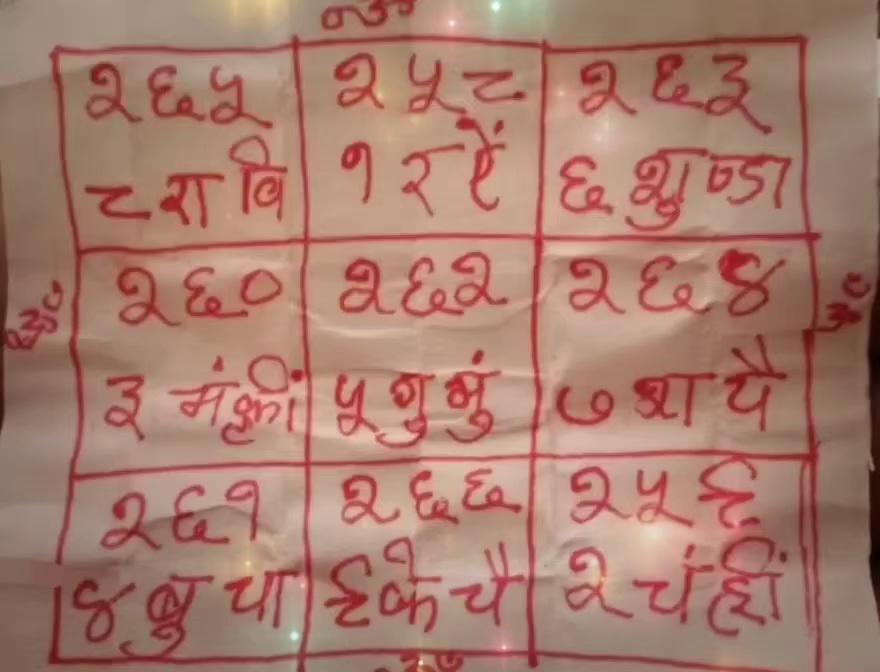 ॐ
२६५ २५८ २६३
८ रा वि १ र ऐं ६ शु ण्डा
२६० २६२ २६४
ॐ ॐ
३ मं क्लीं ५ गु मुं ७ श यै
२६१ २६६ २५९
४ बु चा ९ के चै २ चं ह्रीं
ॐ